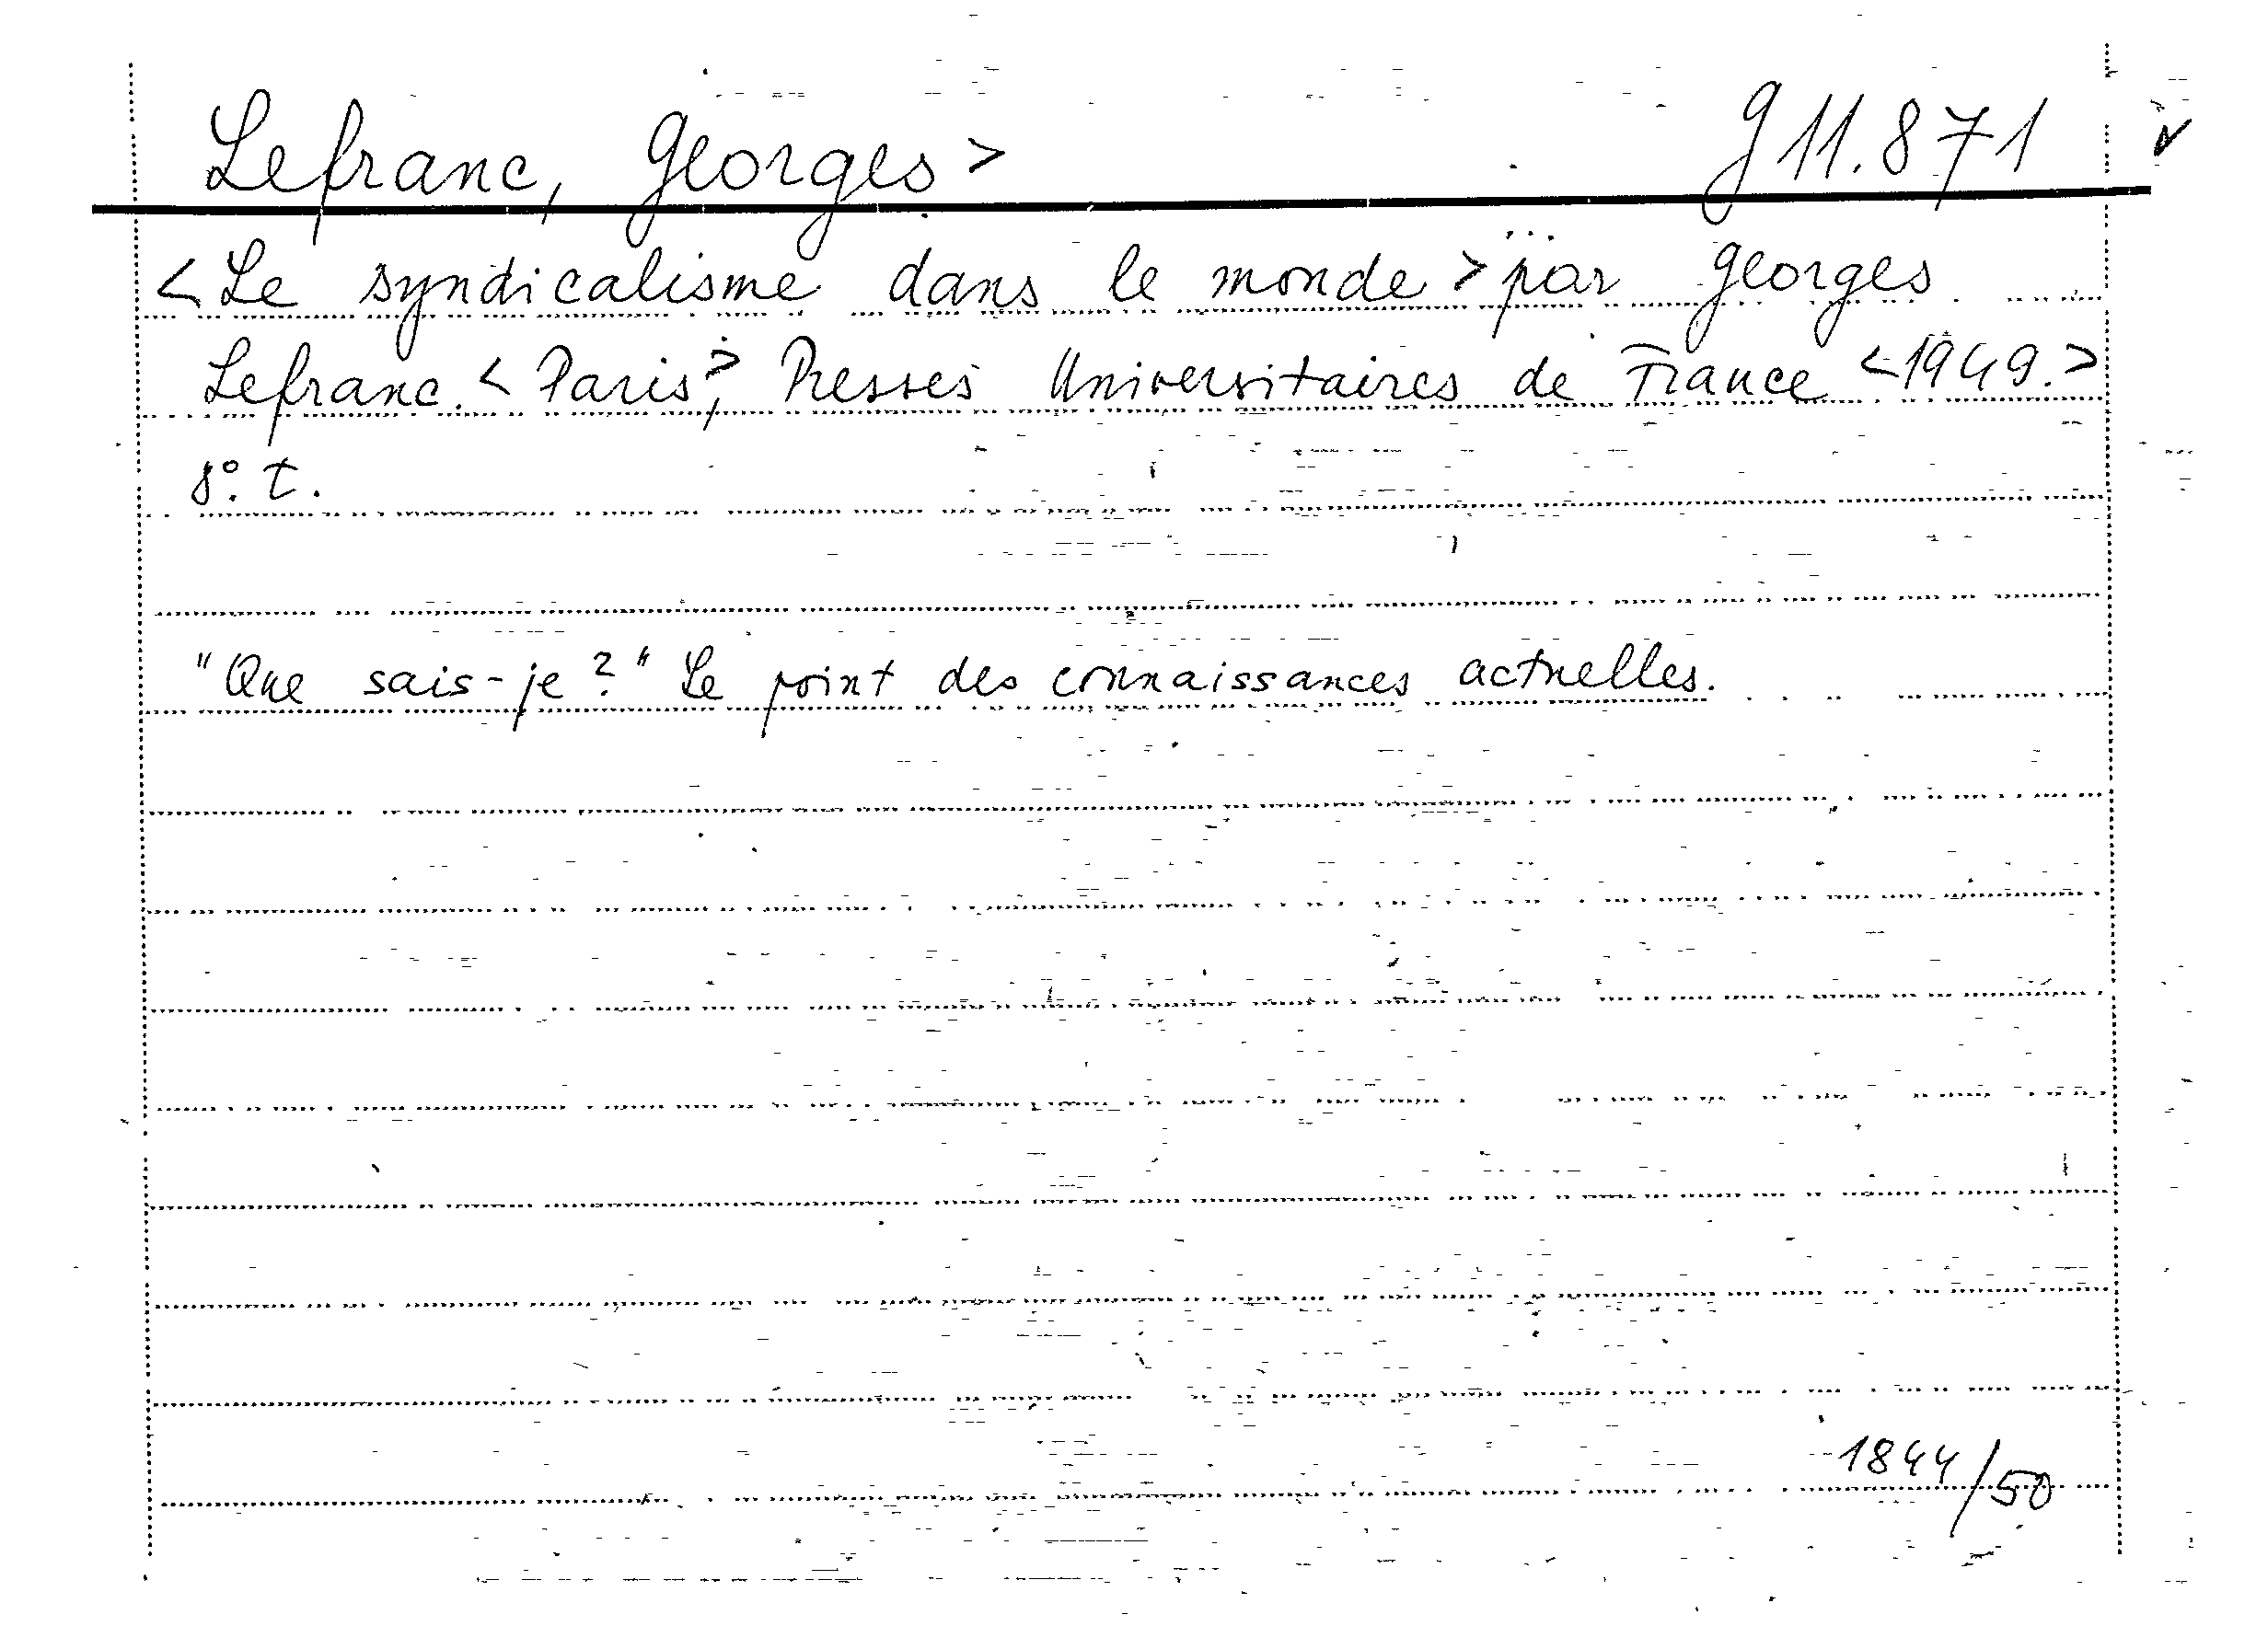 Lefranc, Georges > g 11.871 ✓
<Le syndicalisme dans le monde> ... par Georges
Lefranc. <Paris:>, Presses Universitaires de France <1949.>
8°. t.
"Que sais-je?" Le point des connaissances actuelles.
1844/50